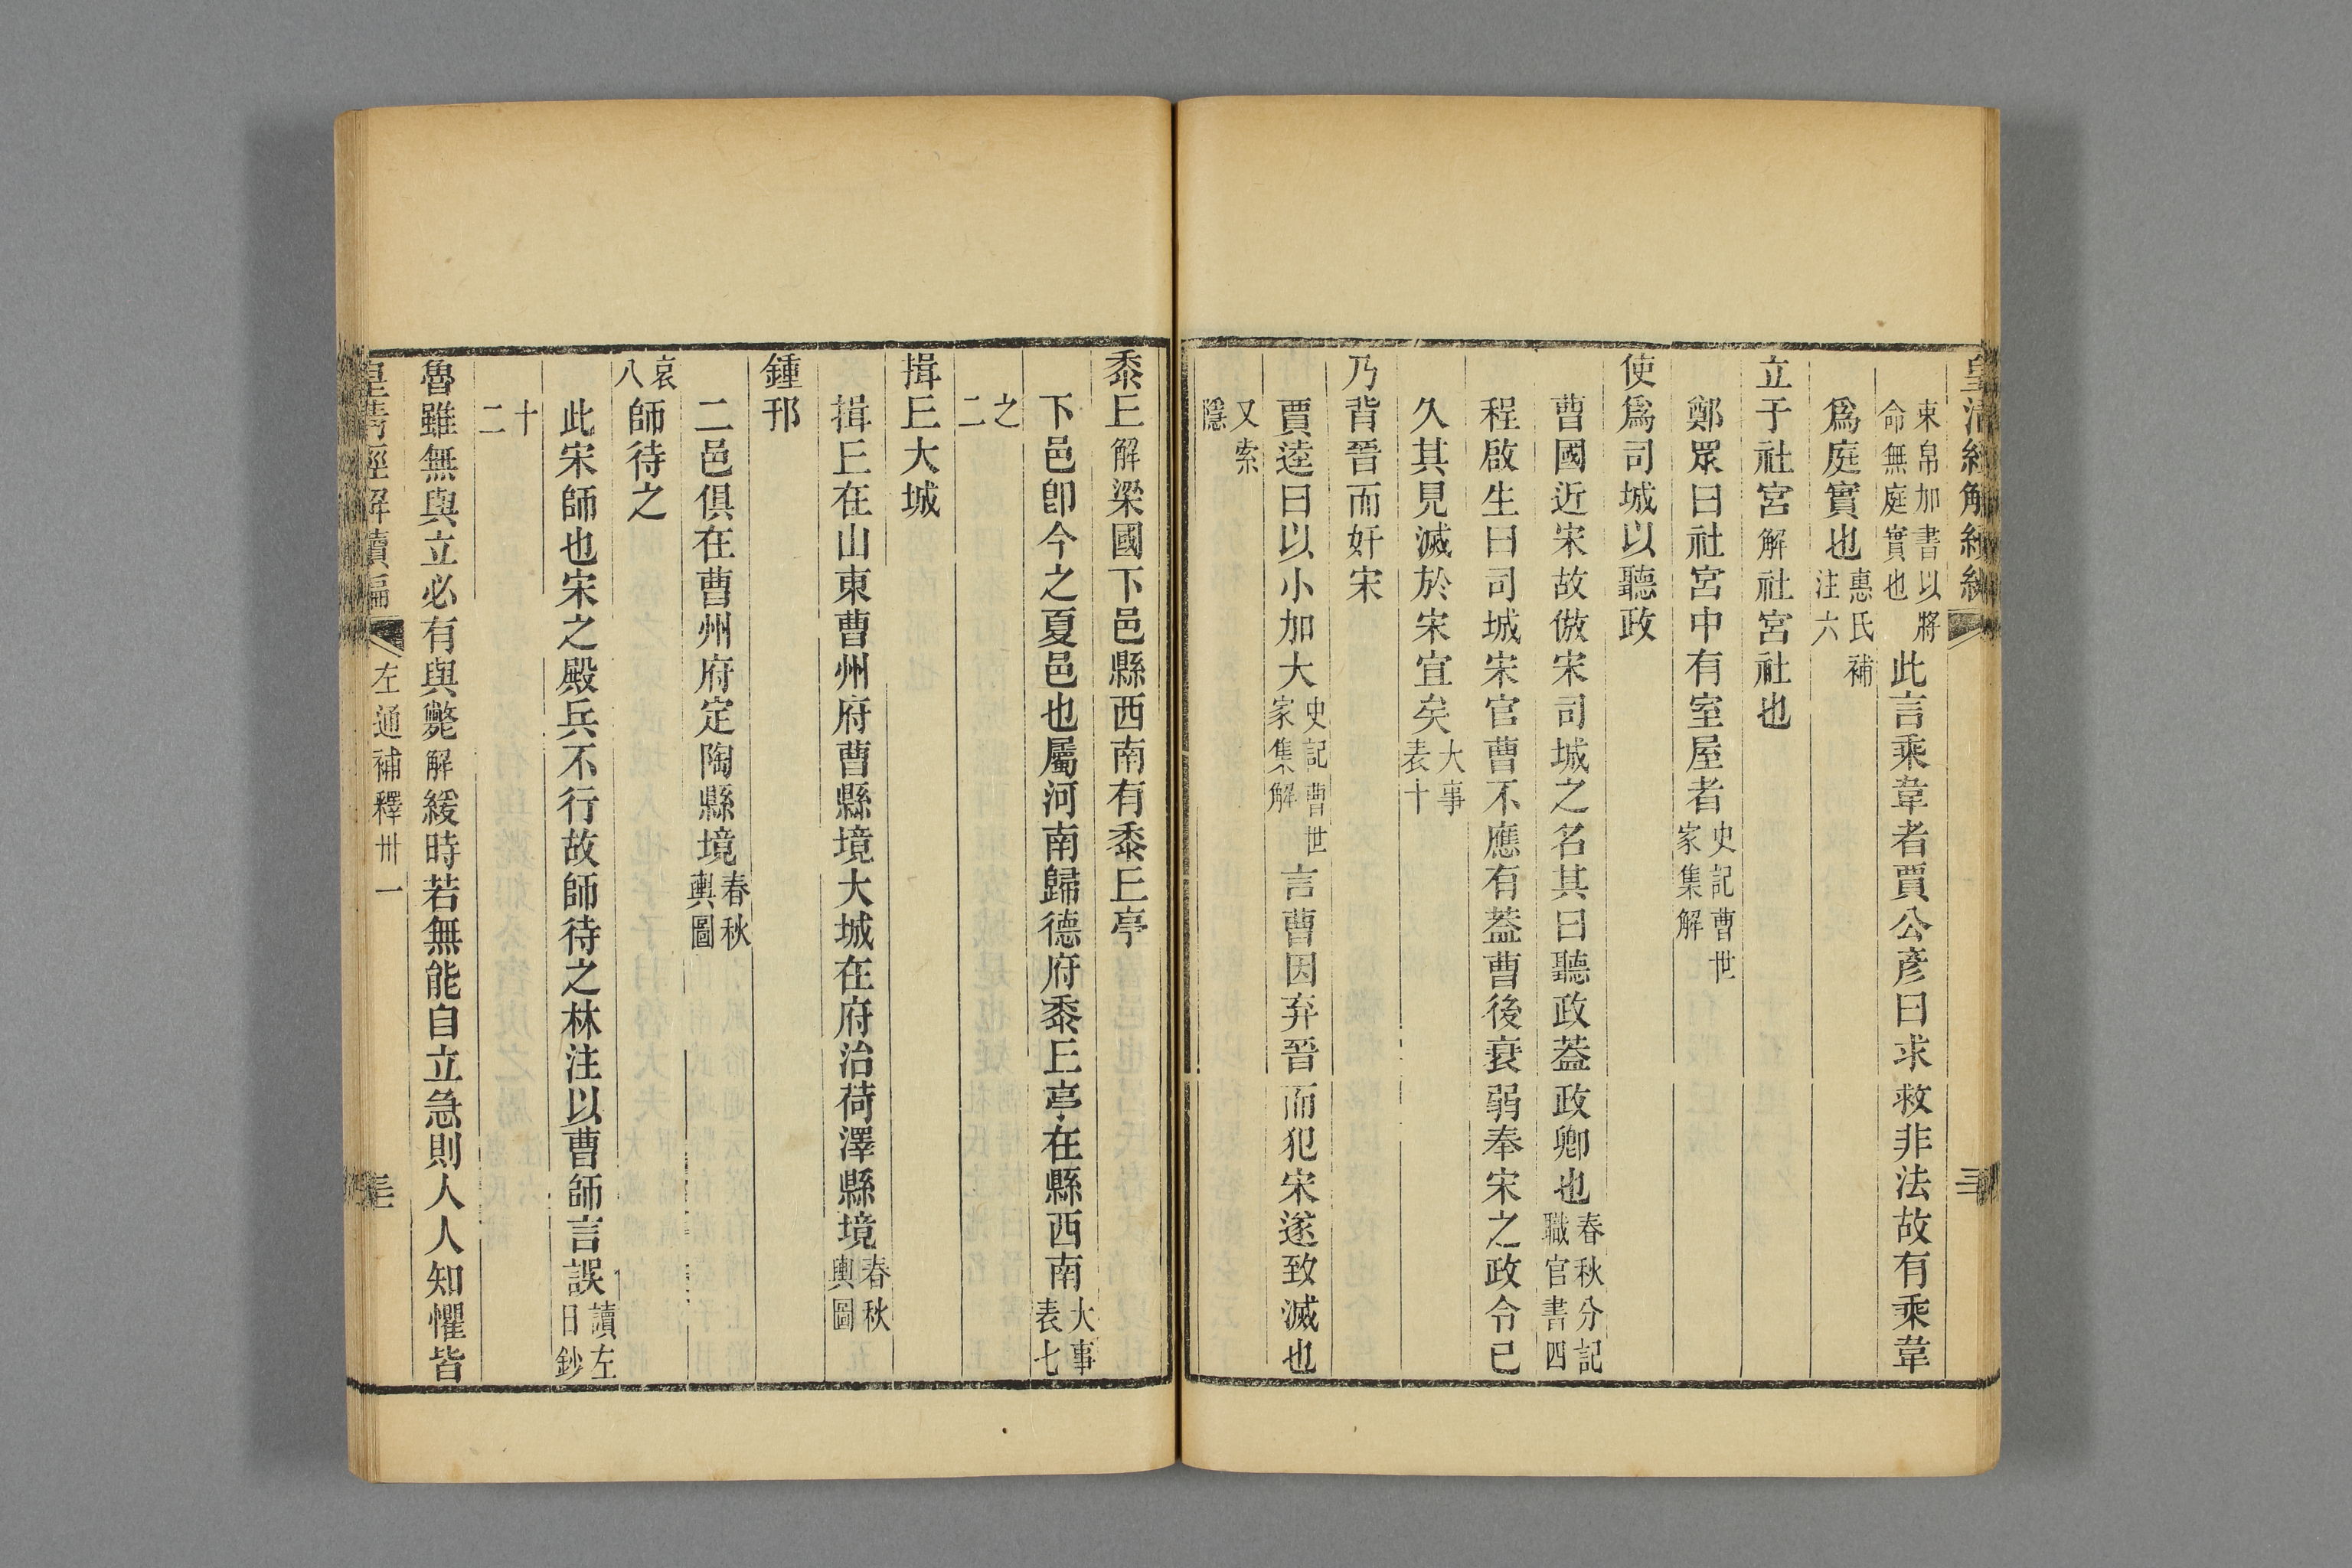 皇清經解續編
束帛加書以將
命無庭實也
此言乘韋者賈公彥曰求救非法故有乘韋
爲庭實也惠氏補
注六
立于社宮解社宮社也
鄭眾曰社宮中有室屋者史記曹世
家集解
使爲司城以聽政
曹國近宋故倣宋司城之名其曰聽政葢政卿也春秋分記
職官書四
程啟生曰司城宋官曹不應有葢曹後衰弱奉宋之政令已
久其見滅於宋宜矣大事
表十
乃背晉而奸宋
賈逵曰以小加大史記曹世
家集解
言曹因弃晉而犯宋遂致滅也
又索
隱
黍丘解梁國下邑縣西南有黍丘亭
下邑卽今之夏邑也屬河南歸德府黍丘亭在縣西南大事
表七
之
二
揖丘大城
揖丘在山東曹州府曹縣境大城在府治荷澤縣境春秋
輿圖
鍾邘
二邑俱在曹州府定陶縣境春秋
輿圖
哀
八
師待之
此宋師也宋之殿兵不行故師待之林注以曹師言誤讀左
日鈔
十
二
魯雖無與立必有與斃解緩時若無能自立急則人人知懼皆
皇清經解續編
左通補釋卅一